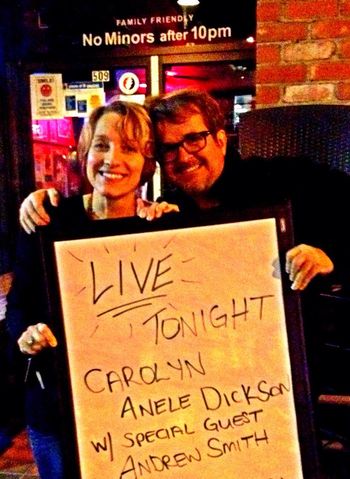 FAMILY FRIENDLY
No Minors after 10pm
509
SMILE!
LIVE
TONIGHT
CAROLYN
ANELE DICKSON
W/ SPECIAL GUEST
ANDREW SMITH